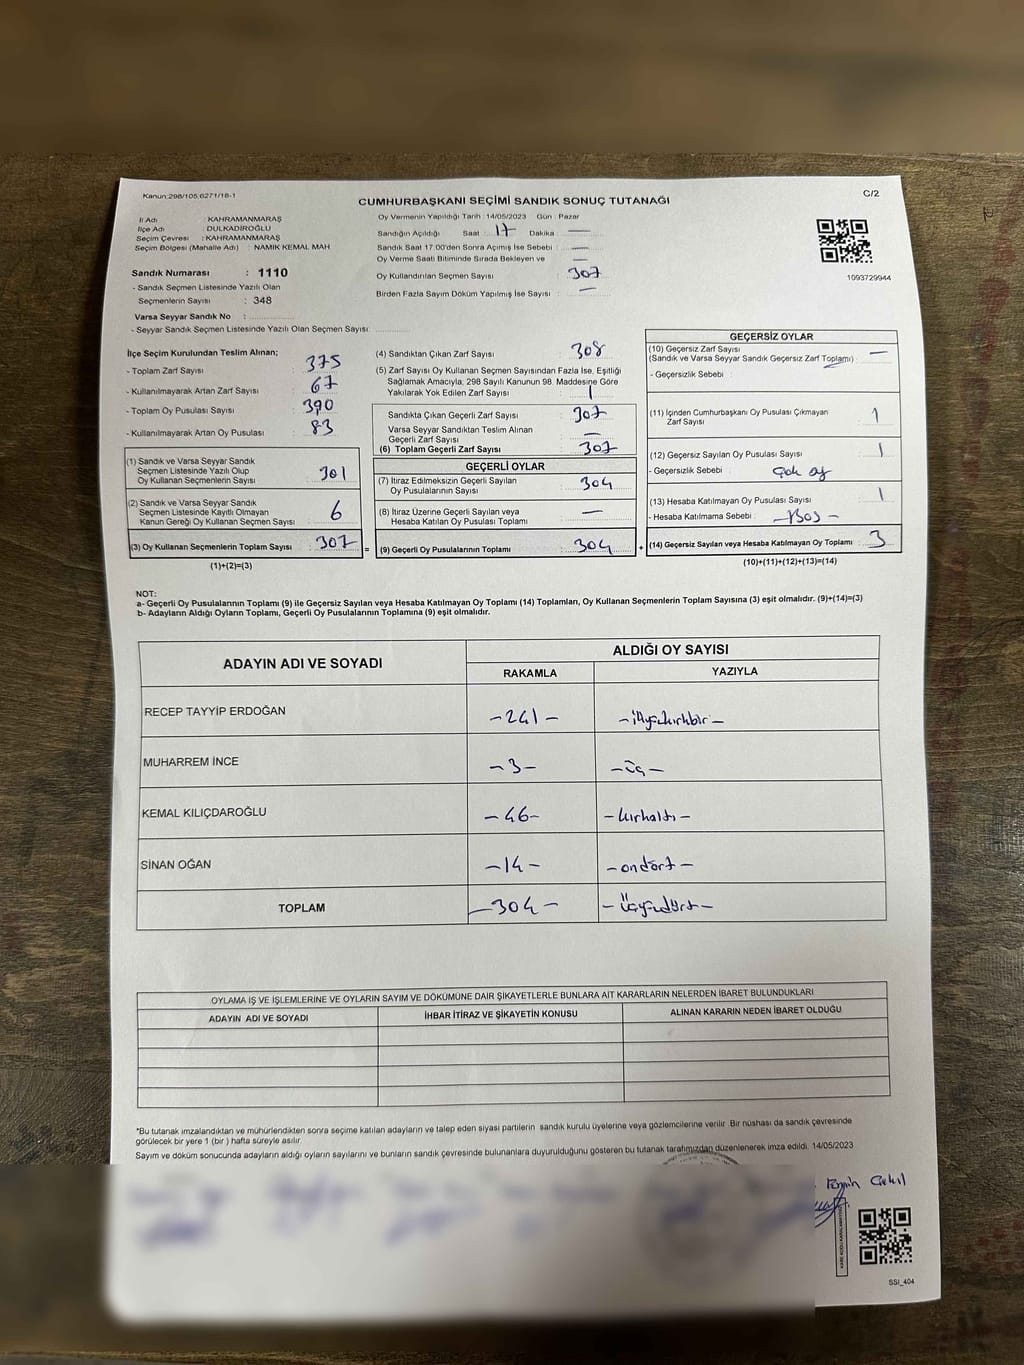 Kanun:298/105,6271/18-1
C/2
CUMHURBAŞKANI SEÇİMİ SANDIK SONUÇ TUTANAĞI
İl Adı : KAHRAMANMARAŞ
İlçe Adı : DULKADİROĞLU
Seçim Çevresi : KAHRAMANMARAŞ
Seçim Bölgesi (Mahalle Adı) : NAMIK KEMAL MAH
Sandık Numarası : 1110
- Sandık Seçmen Listesinde Yazılı Olan
Seçmenlerin Sayısı : 348
Varsa Seyyar Sandık No :
- Seyyar Sandık Seçmen Listesinde Yazılı Olan Seçmen Sayısı:
Oy Vermenin Yapıldığı Tarih : 14/05/2023 Gün : Pazar
Sandığın Açıldığı Saat : 17 Dakika : —
Sandık Saat 17.00'den Sonra Açımış İse Sebebi : —
Oy Verme Saati Bitiminde Sırada Bekleyen ve —
Oy Kullandırılan Seçmen Sayısı : 307
Birden Fazla Sayım Döküm Yapılmış İse Sayısı : —
1093729944
İlçe Seçim Kurulundan Teslim Alınan;
- Toplam Zarf Sayısı : 375
- Kullanılmayarak Artan Zarf Sayısı : 67
- Toplam Oy Pusulası Sayısı : 390
- Kullanılmayarak Artan Oy Pusulası : 83
(1) Sandık ve Varsa Seyyar Sandık
Seçmen Listesinde Yazılı Olup
Oy Kullanan Seçmenlerin Sayısı : 301
(2) Sandık ve Varsa Seyyar Sandık
Seçmen Listesinde Kayıtlı Olmayan
Kanun Gereği Oy Kullanan Seçmen Sayısı : 6
(3) Oy Kullanan Seçmenlerin Toplam Sayısı : 307
(1)+(2)=(3)
=
(4) Sandıktan Çıkan Zarf Sayısı : 308
(5) Zarf Sayısı Oy Kullanan Seçmen Sayısından Fazla İse, Eşitliği
Sağlamak Amacıyla; 298 Sayılı Kanunun 98. Maddesine Göre
Yakılarak Yok Edilen Zarf Sayısı : 1
Sandıkta Çıkan Geçerli Zarf Sayısı : 307
Varsa Seyyar Sandıktan Teslim Alınan
Geçerli Zarf Sayısı : —
(6) Toplam Geçerli Zarf Sayısı : 307
GEÇERLİ OYLAR
(7) İtiraz Edilmeksizin Geçerli Sayılan
Oy Pusulalarının Sayısı : 304
(8) İtiraz Üzerine Geçerli Sayılan veya
Hesaba Katılan Oy Pusulası Toplamı : —
(9) Geçerli Oy Pusulalarının Toplamı : 304
+
GEÇERSİZ OYLAR
(10) Geçersiz Zarf Sayısı : —
(Sandık ve Varsa Seyyar Sandık Geçersiz Zarf Toplamı)
- Geçersizlik Sebebi :
(11) İçinden Cumhurbaşkanı Oy Pusulası Çıkmayan
Zarf Sayısı : 1
(12) Geçersiz Sayılan Oy Pusulası Sayısı : 1
- Geçersizlik Sebebi : Çok oy
(13) Hesaba Katılmayan Oy Pusulası Sayısı : 1
- Hesaba Katılmama Sebebi : -Boş-
(14) Geçersiz Sayılan veya Hesaba Katılmayan Oy Toplamı : 3
(10)+(11)+(12)+(13)=(14)
NOT:
a- Geçerli Oy Pusulalarının Toplamı (9) ile Geçersiz Sayılan veya Hesaba Katılmayan Oy Toplamı (14) Toplamları, Oy Kullanan Seçmenlerin Toplam Sayısına (3) eşit olmalıdır. (9)+(14)=(3)
b- Adayların Aldığı Oyların Toplamı, Geçerli Oy Pusulalarının Toplamına (9) eşit olmalıdır.
ADAYIN ADI VE SOYADI
ALDIĞI OY SAYISI
RAKAMLA YAZIYLA
RECEP TAYYİP ERDOĞAN -241- -ikiyüzkırkbir-
MUHARREM İNCE -3- -üç-
KEMAL KILIÇDAROĞLU -46- -kırkaltı-
SİNAN OĞAN -14- -ondört-
TOPLAM -304- -üçyüzdört-
OYLAMA İŞ VE İŞLEMLERİNE VE OYLARIN SAYIM VE DÖKÜMÜNE DAİR ŞİKAYETLERLE BUNLARA AİT KARARLARIN NELERDEN İBARET BULUNDUKLARI
ADAYIN ADI VE SOYADI İHBAR İTİRAZ VE ŞİKAYETİN KONUSU ALINAN KARARIN NEDEN İBARET OLDUĞU
*Bu tutanak imzalandıktan ve mühürlendikten sonra seçime katılan adayların ve talep eden siyasi partilerin sandık kurulu üyelerine veya gözlemcilerine verilir. Bir nüshası da sandık çevresinde
görülecek bir yere 1 (bir ) hafta süreyle asılır.
Sayım ve döküm sonucunda adayların aldığı oyların sayılarını ve bunların sandık çevresinde bulunanlara duyurulduğunu gösteren bu tutanak tarafımızdan düzenlenerek imza edildi. 14/05/2023
SSI_404